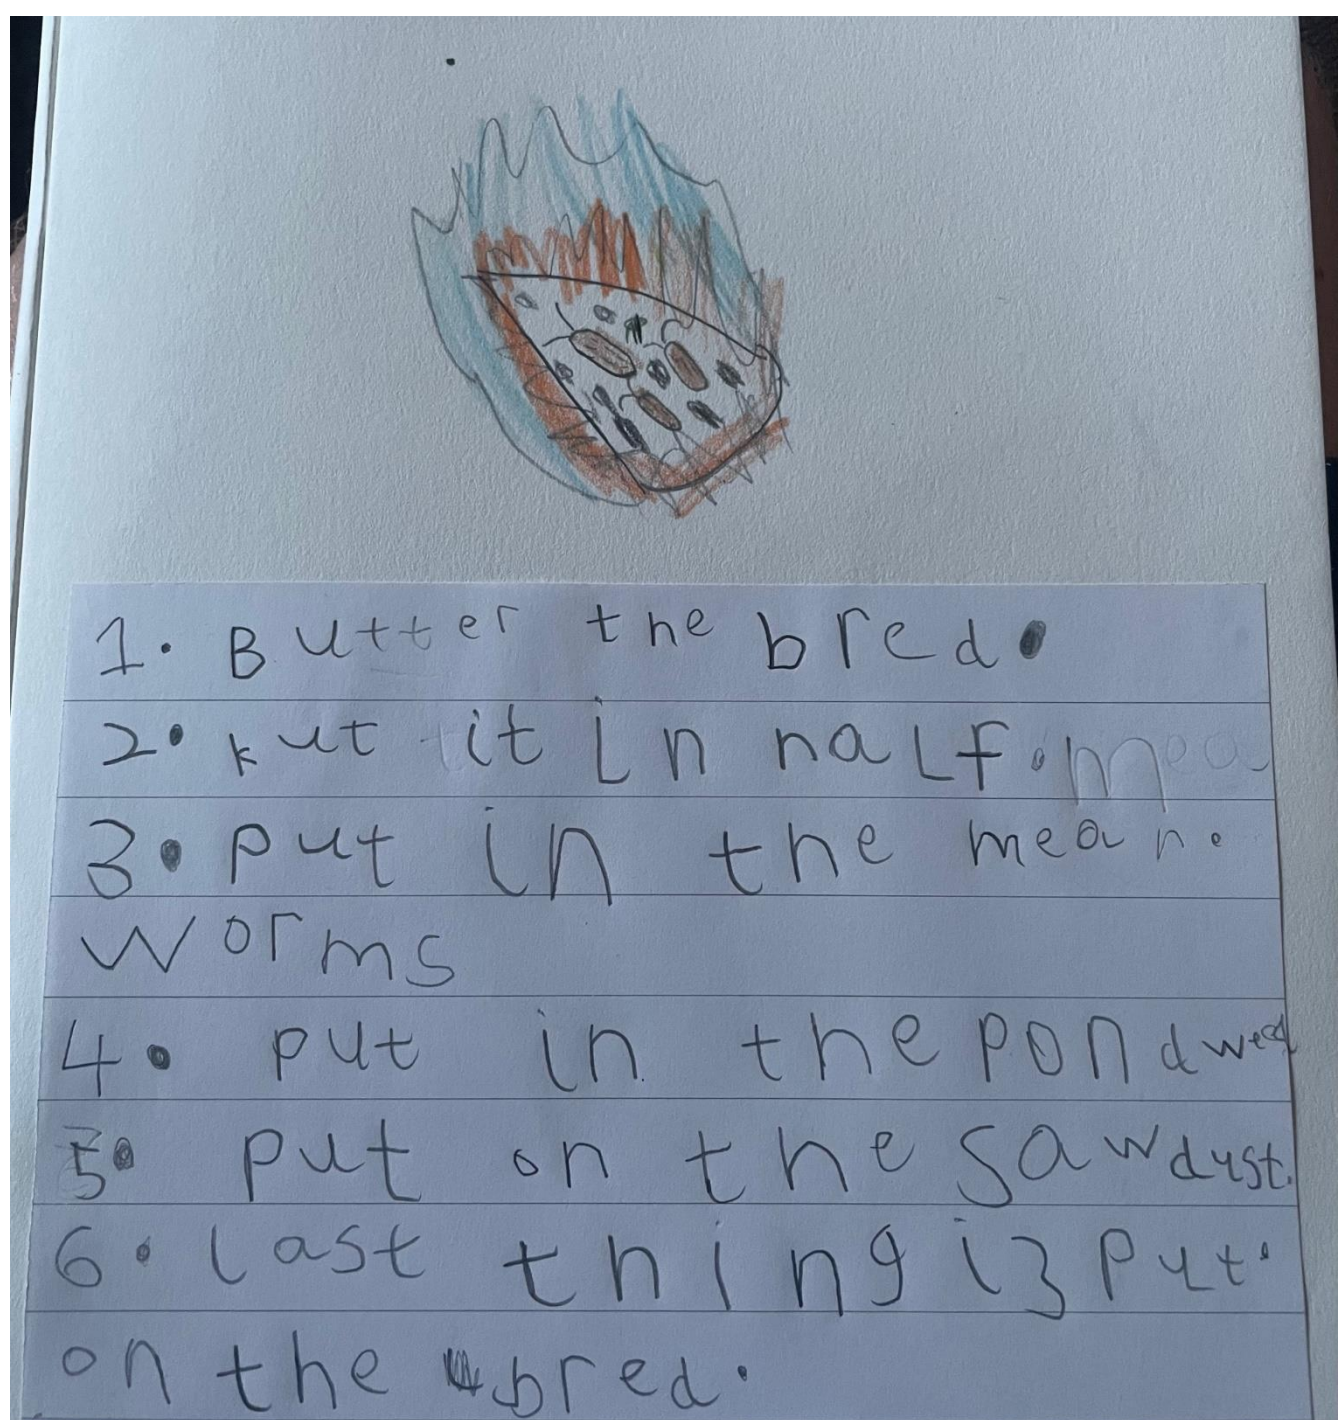 1. Butter the bred.
2. kut it in half. mea
3. put in the mean.
worms
4. put in the pondweed
5. put on the sawdust.
6. last thing iz put.
on the bred.